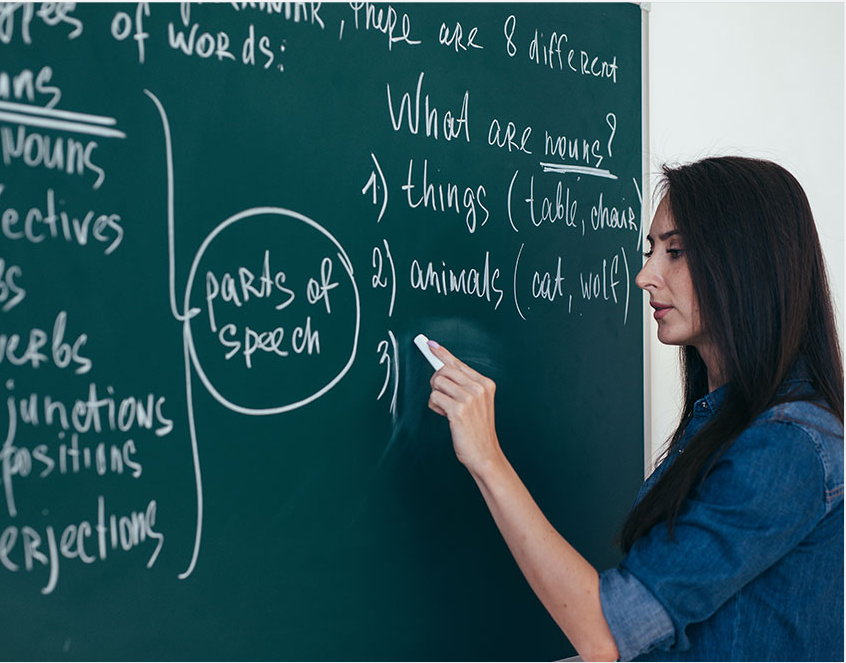 , there are 8 different
ypes of words:
uns
Nouns
ectives
bs
verbs
junctions
positions
erjections
parts of
speech
What are nouns?
1) things (table, chair)
2) animals (cat, wolf)
3)